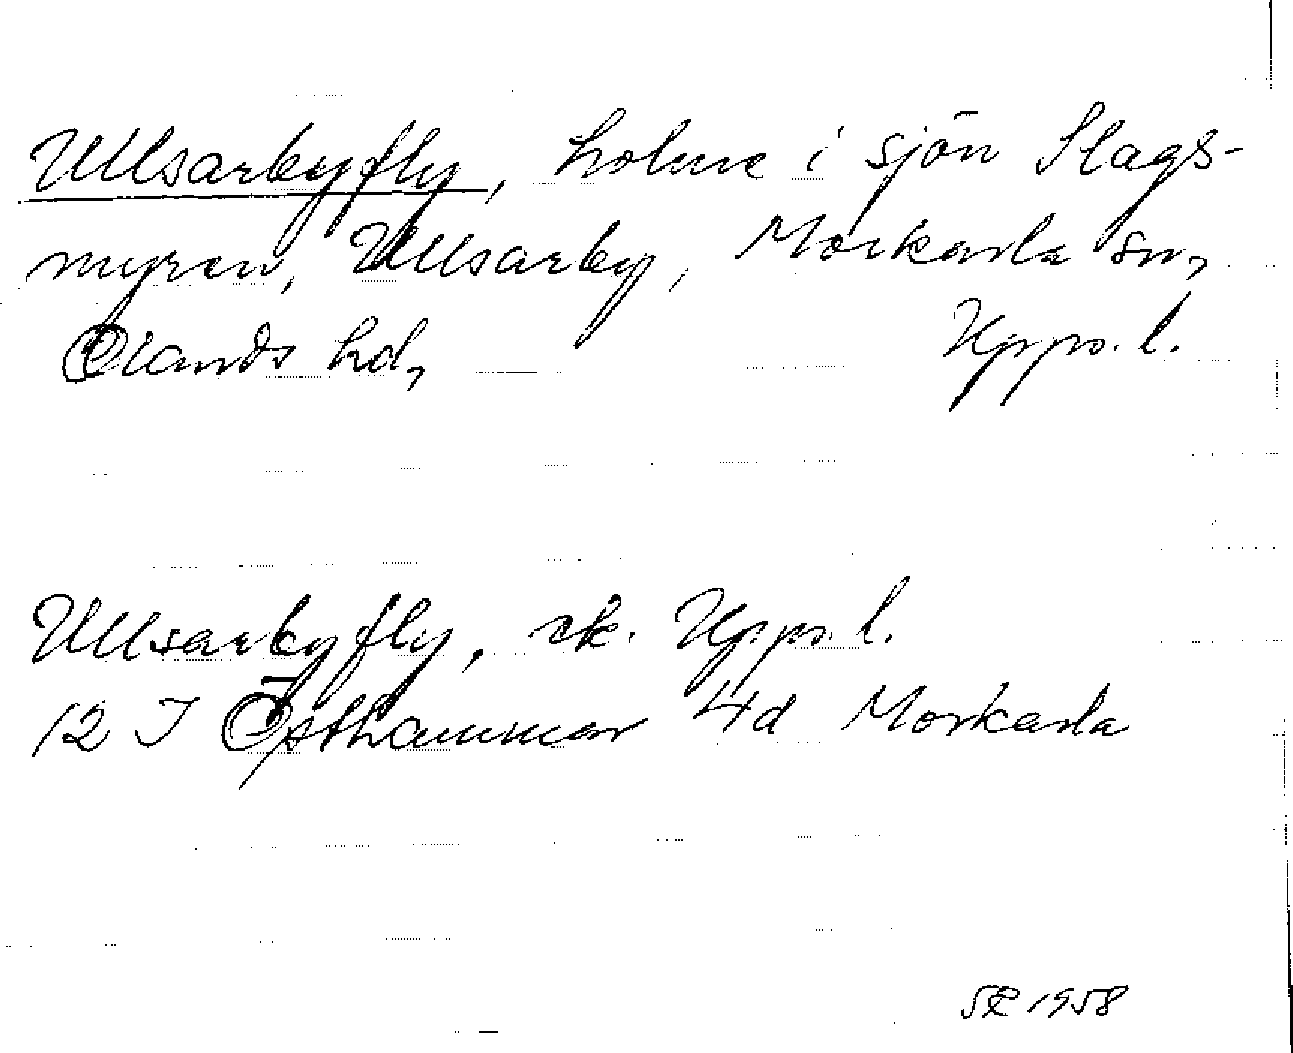 Ullsarbyfly, holme i sjön Slags-
myren, Ullsarby, Morkarla sn,
Olands hd, Upps. l.
Ullsarbyfly, ek. Upps. l.
12 I Östhammar 4d Morkarla
SR 1958